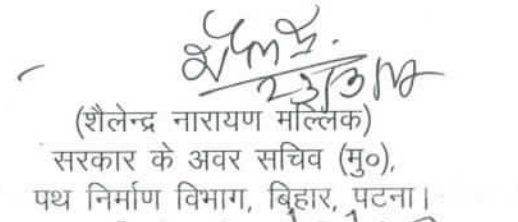 शैलेन्द्र
23/3/18
(शैलेन्द्र नारायण मल्लिक)
सरकार के अवर सचिव (मु०),
पथ निर्माण विभाग, बिहार, पटना।